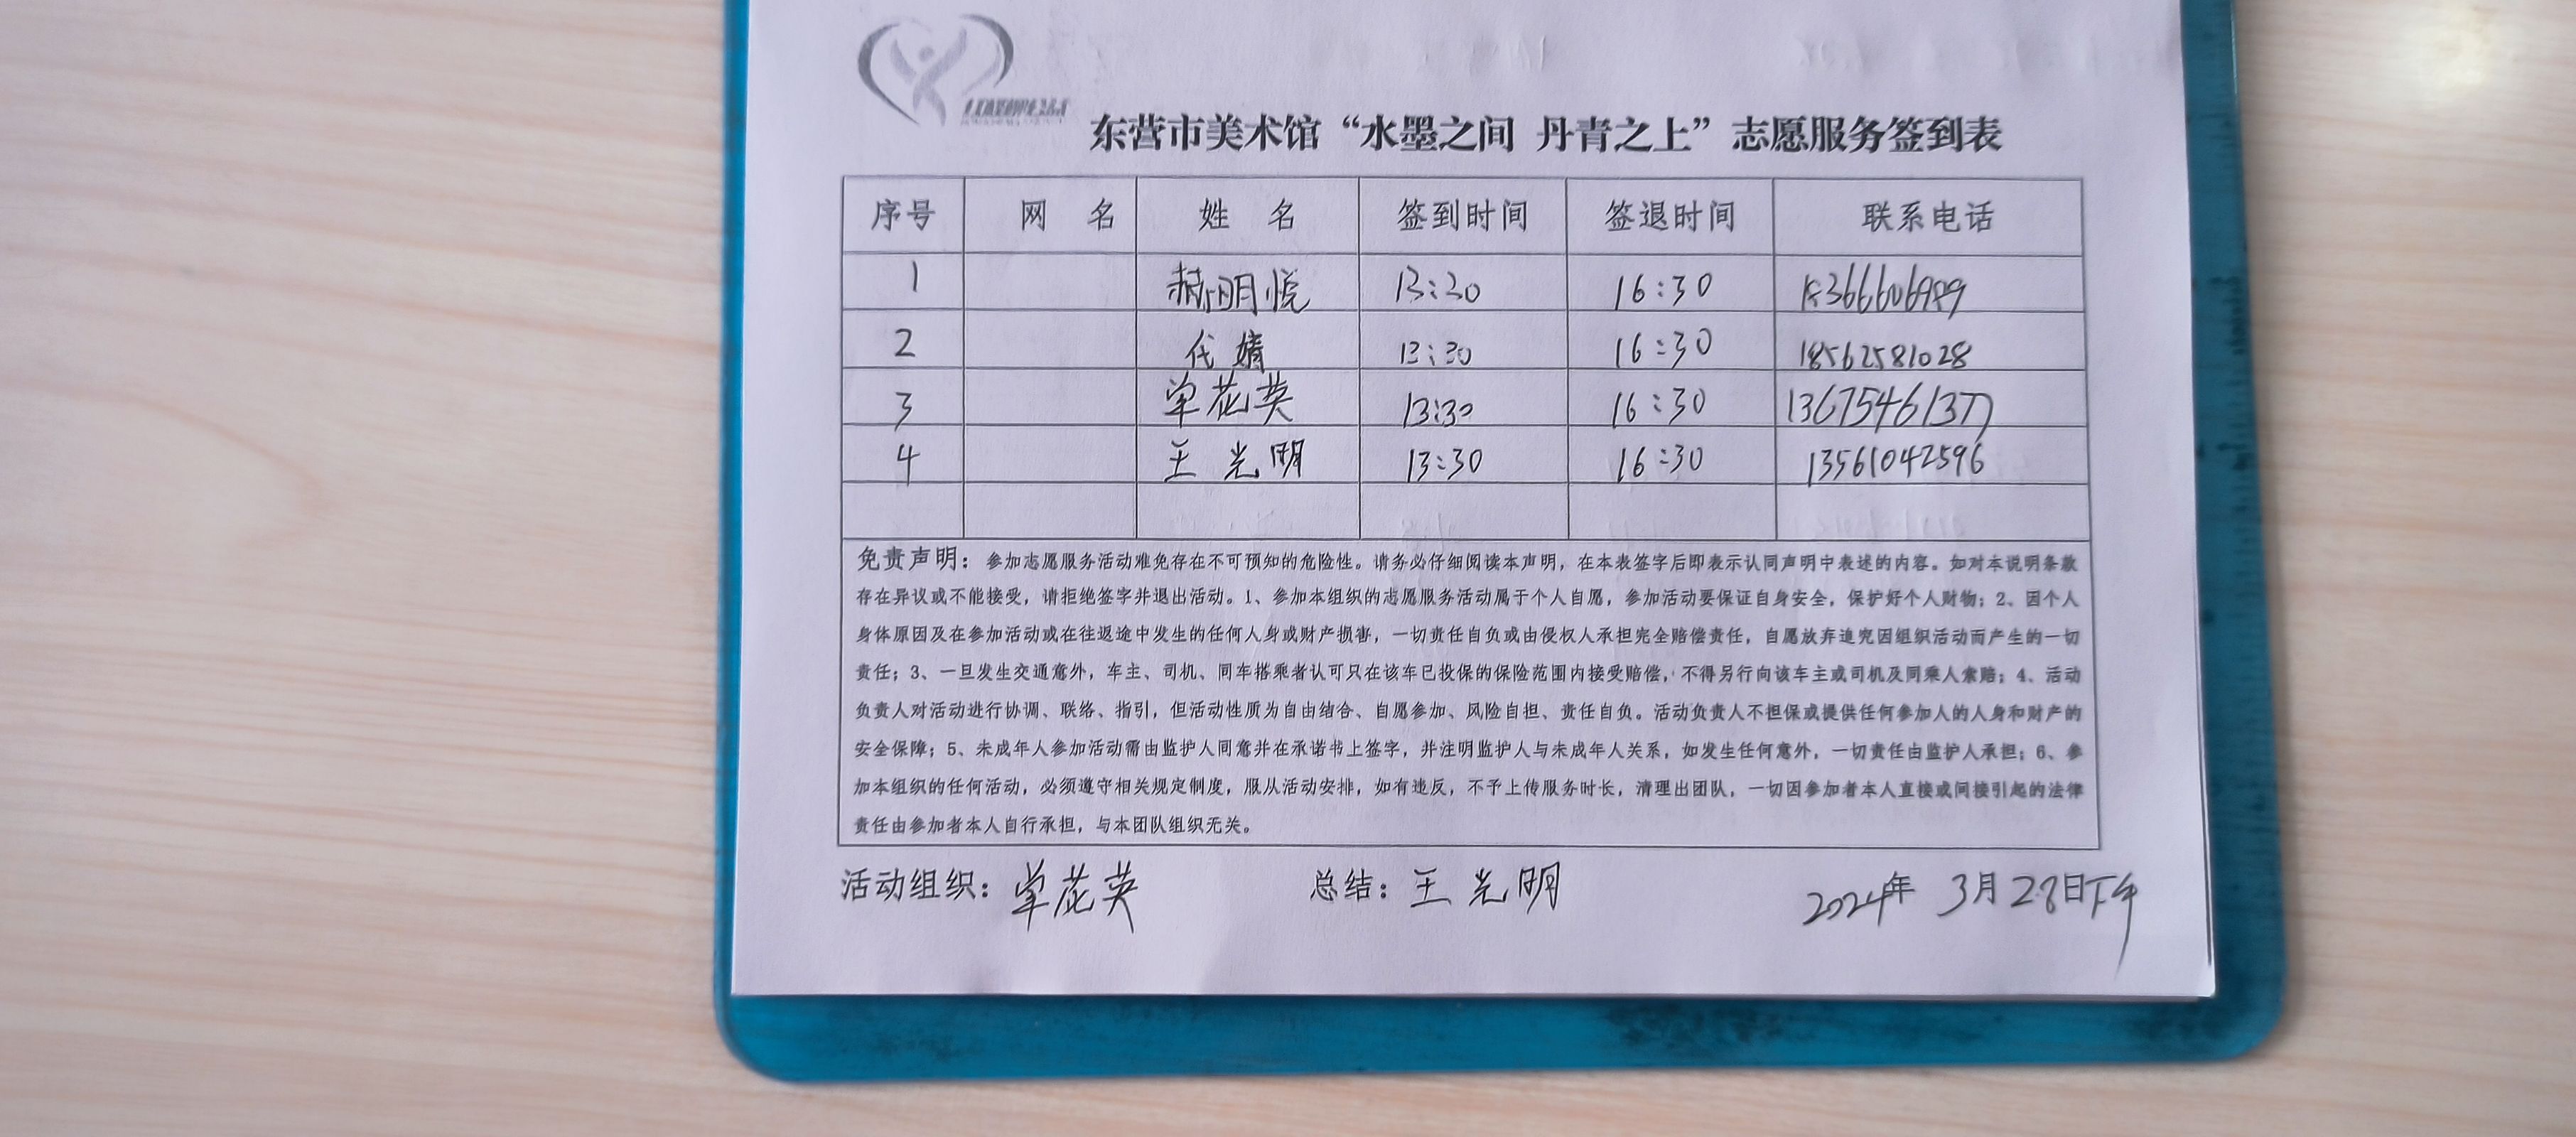 东营市美术馆“水墨之间 丹青之上”志愿服务签到表
序号 网 名 姓 名 签到时间 签退时间 联系电话
1 郝明悦 13:30 16:30
2 代婧 13:30 16:30 18562581028
3 单花英 13:30 16:30 13675461377
4 王光明 13:30 16:30 13561042596
免责声明：参加志愿服务活动难免存在不可预知的危险性。请务必仔细阅读本声明，在本表签字后即表示认同声明中表述的内容。如对本说明条款
存在异议或不能接受，请拒绝签字并退出活动。1、参加本组织的志愿服务活动属于个人自愿，参加活动要保证自身安全，保护好个人财物；2、因个人
身体原因及在参加活动或在往返途中发生的任何人身或财产损害，一切责任自负或由侵权人承担完全赔偿责任，自愿放弃追究因组织活动而产生的一切
责任；3、一旦发生交通意外，车主、司机、同车搭乘者认可只在该车已投保的保险范围内接受赔偿，不得另行向该车主或司机及同乘人索赔；4、活动
负责人对活动进行协调、联络、指引，但活动性质为自由结合、自愿参加、风险自担、责任自负。活动负责人不担保或提供任何参加人的人身和财产的
安全保障；5、未成年人参加活动需由监护人同意并在承诺书上签字，并注明监护人与未成年人关系，如发生任何意外，一切责任由监护人承担；6、参
加本组织的任何活动，必须遵守相关规定制度，服从活动安排，如有违反，不予上传服务时长，清理出团队，一切因参加者本人直接或间接引起的法律
责任由参加者本人自行承担，与本团队组织无关。
活动组织：单花英 总结：王光明 2024年 3月28日下午